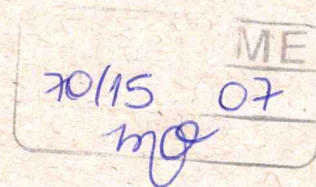 ME
70/15 07